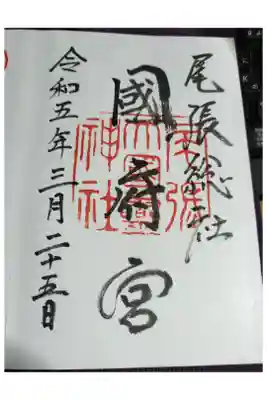 尾張総社
國府宮
令和五年三月二十五日
尾張大國霊神社